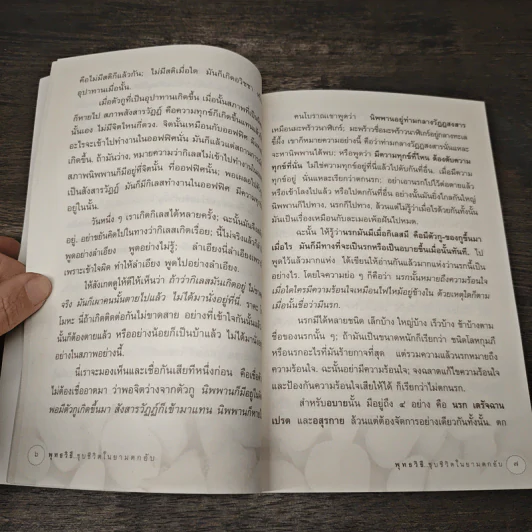 คือไม่มีสติก็แล้วกัน; ไม่มีสติเมื่อใด มันก็เกิดอวิชชา
อุปาทานเมื่อนั้น.
เมื่อตัวกูที่เป็นอุปาทานเกิดขึ้น เมื่อนั้นสภาพที่
ก็หายไป สภาพสังสารวัฏฏ์ คือความทุกข์ก็เกิดขึ้นแทน
นั่นเอง ไม่มีจิตไหนที่ดวง. จิตนั้นเหมือนกับออฟฟิศ
อะไรจะเข้าไปทำงานในออฟฟิศนั่น มันก็แล้วแต่
เกิดขึ้น. ถ้ามันว่าง, หมายความว่ากิเลสไม่เข้าไปทำงาน
สภาพนิพพานก็มีอยู่ที่จิตนั้น ที่ออฟฟิศนั้น; พอเผลอไป
เป็นสังสารวัฏฏ์ มันก็มีกิเลสทำงานในออฟฟิศ มีความ
อยู่ในนั้น.
วันหนึ่ง ๆ เราเกิดกิเลสได้หลายครั้ง; ฉะนั้นมัน
อยู่. อย่าขยันคิดไปในทางว่ากิเลสเกิดเรื่อย; นี่ไม่จริงแล้ว
พูดอย่างลำเอียง พูดอย่างไม่รู้; ลำเอียงนี่ลำเอียง
เพราะเข้าใจผิด ทำให้ลำเอียง พูดไปอย่างลำเอียง.
ให้สังเกตดูให้ดีให้เห็นว่า ถ้าว่ากิเลสมันเกิดอยู่ไม่ขาด
จริง มันก็เผาคนนั้นตายไปแล้ว ไม่ได้มานั่งอยู่ที่นี่.
โมหะ นี่ถ้าเกิดติดต่อกันไม่ขาดสาย อย่างที่เข้าใจกันนั้น
นั้นก็ต้องตายแล้ว หรืออย่างน้อยก็เป็นบ้าแล้ว ไม่ได้มา
อย่างในสภาพอย่างนี้.
นี่เราจะมองเห็นและเชื่อกันเสียทีหนึ่งก่อน คือเชื่อ
ไม่ต้องเชื่ออาตมา ว่าพอจิตว่างจากตัวกู นิพพานก็มีอยู่
พอมีตัวกูเกิดขึ้นมา สังสารวัฏฏ์ก็เข้ามาแทน นิพพานก็หาย
๖ พุทธวิธี ชุบชีวิตในยามตกอับ
คนโบราณเขาพูดว่า นิพพานอยู่ท่ามกลางวัฏฏสงสาร
เหมือนมะพร้าวนาฬิเกร์; มะพร้าวชื่อมะพร้าวนาฬิเกร์อยู่กลางทะเล
ขี้ผึ้ง เขาก็หมายความอย่างนี้ คือว่าท่ามกลางวัฏฏสงสารนั่นแหละ
จะหานิพพานได้พบ; หรือพูดว่า มีความทุกข์ที่ไหน ต้องดับความ
ทุกข์ที่นั่น ไม่ใช่ความทุกข์อยู่ที่นี่แล้วไปดับกันที่อื่น. เมื่อมีความ
ทุกข์อยู่ นั่นแหละเรียกว่าตกนรก; อย่าเอานรกไปไว้ต่อตายแล้ว
หรือเข้าโลงไปแล้ว หรือไปตกกันที่อื่น อย่างนั้นมันยิ่งไกลกันใหญ่
นิพพานก็ไปทาง, นรกก็ไปทาง, ล้วนแต่ไม่รู้ว่าเมื่อไรด้วยกันทั้งนั้น
มันเป็นเรื่องเหมือนกับละเมอเพ้อฝันไปหมด.
ฉะนั้น ให้รู้ว่านรกมันมีเมื่อกิเลสมี คือมีตัวกู-ของกูขึ้นมา
เมื่อไร มันก็มีทางที่จะเป็นนรกหรือเป็นอบายขึ้นเมื่อนั้นทันที. ไป
พูดไว้แล้วมากแห่ง ได้เขียนให้อ่านกันแล้วมากแห่งว่านรกนี้เป็น
อย่างไร. โดยใจความย่อ ๆ ก็คือว่า นรกนั้นหมายถึงความร้อนใจ
เมื่อใดใครมีความร้อนใจเหมือนไฟไหม้อยู่ข้างใน ด้วยเหตุใดก็ตาม
เมื่อนั้นชื่อว่ามีนรก.
นรกมีได้หลายชนิด เล็กบ้าง ใหญ่บ้าง เร็วบ้าง ช้าบ้างตาม
ชื่อของนรกนั้น ๆ; ถ้ามันเป็นขนาดหนักก็เรียกว่า ชนิดโลหกุมภี
หรือนรกอะไรที่มันร้ายกาจที่สุด แต่รวมความแล้วนรกหมายถึง
ความร้อนใจ. ฉะนั้นอย่ามีความร้อนใจ; จงฉลาดแก้ไขความร้อนใจ
และป้องกันความร้อนใจเสียให้ได้ ก็เรียกว่าไม่ตกนรก.
สำหรับอบายนั้น มีอยู่ถึง ๔ อย่าง คือ นรก เดรัจฉาน
เปรต และอสุรกาย ล้วนแต่ต้องจัดการอย่างเดียวกันทั้งนั้น. ตก
พุทธวิธี ชุบชีวิตในยามตกอับ ๗